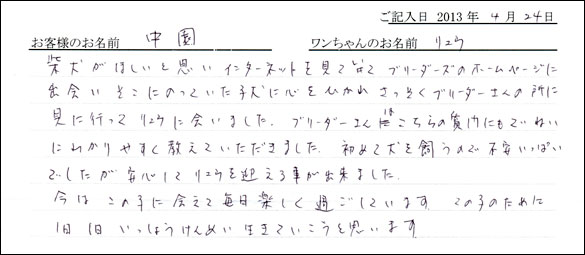 ご記入日 2013 年 4 月 24 日
お客様のお名前 中園 ワンちゃんのお名前 リュウ
柴犬がほしいと思いインターネットを見て ブリーダーズのホームページに
出会い そこにのっていた子犬に心をひかれ さっそくブリーダーさんの所に
見に行って リュウに会いました。 ブリーダーさんは こちらの質問にもていねい
にわかりやすく教えていただきました。 初めて犬を飼うので不安いっぱい
でしたが 安心してリュウを迎える事が出来ました。
今は この子に会えて毎日楽しく過ごしています この子のために
1日1日 いっしょうけんめい生きていこうと思います